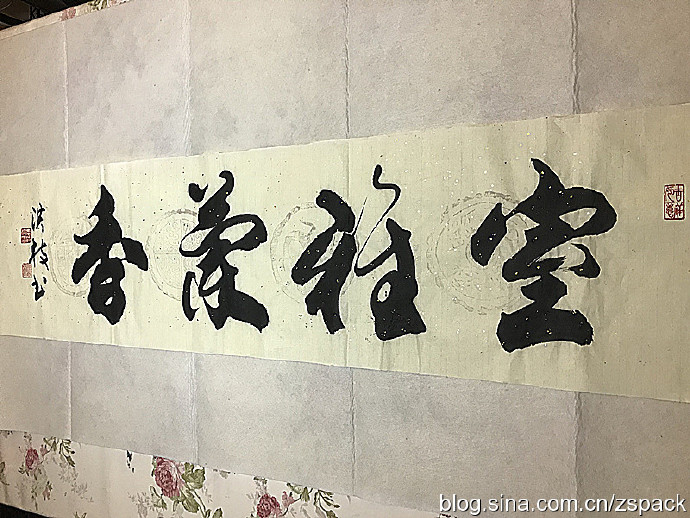 室雅兰香
blog.sina.com.cn/zspack